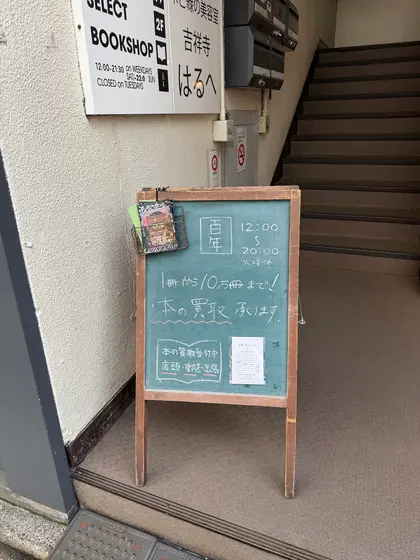 SELECT
BOOKSHOP
2F
12:00-21:30 on WEEKDAYS
CLOSED on TUESDAYS
の美容室
吉祥寺
はるへ
百年
12:00
~
20:00
火曜休
1冊から10万冊まで!
本の買取 承ります
本の買取受付中
店頭・郵送・出張